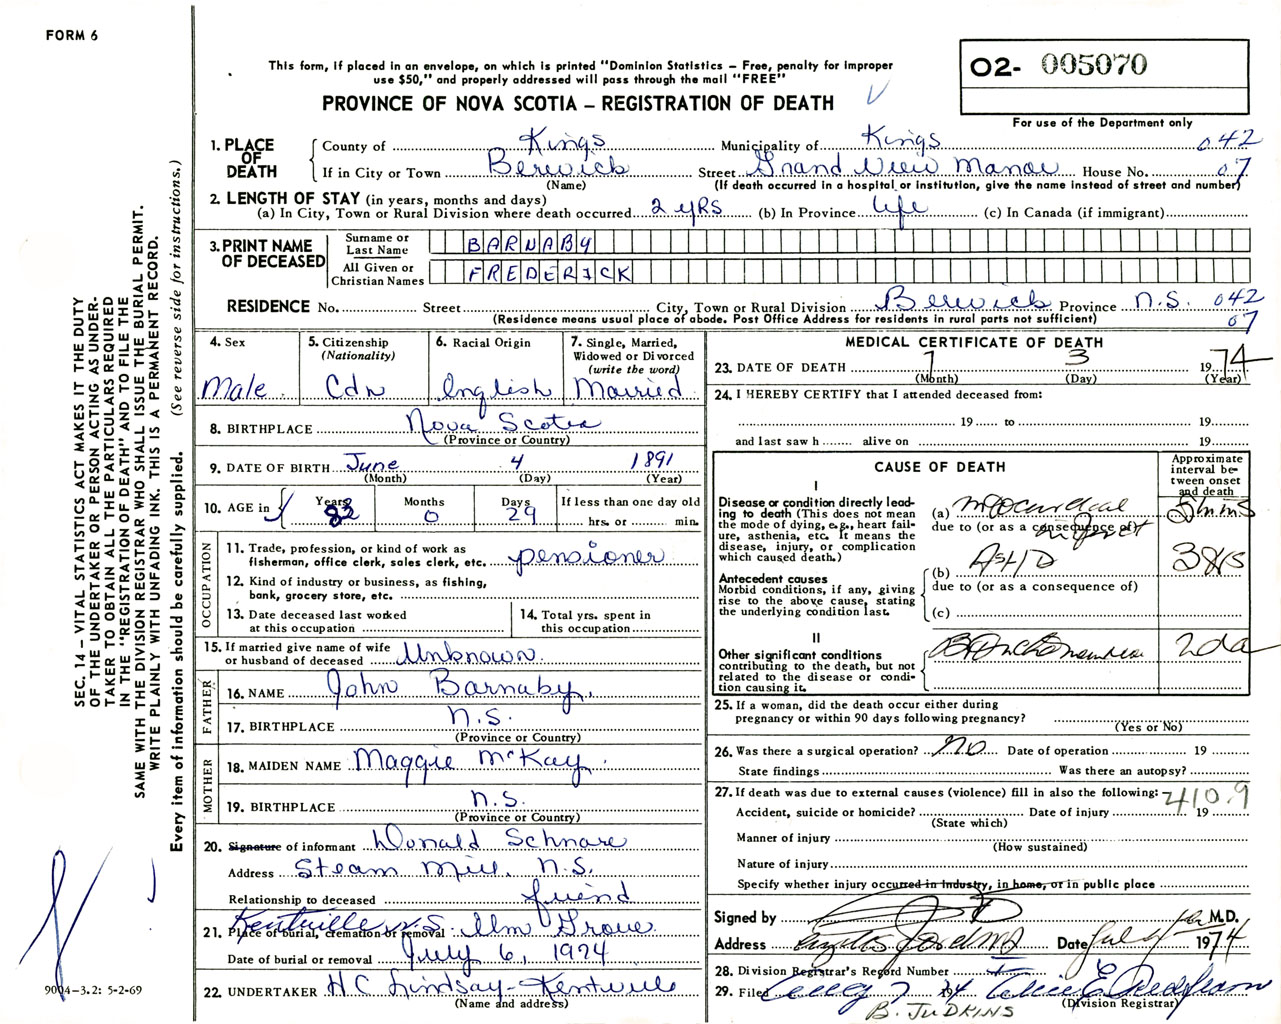 FORM 6
This form, if placed in an envelope, on which is printed "Dominion Statistics – Free, penalty for improper
use $50," and properly addressed will pass through the mail "FREE"
O2- 005070
For use of the Department only
PROVINCE OF NOVA SCOTIA – REGISTRATION OF DEATH
1. PLACE OF DEATH
County of Kings Municipality of Kings 042
If in City or Town Berwick Street Grand View Manor House No. 07
(Name) (If death occurred in a hospital or institution, give the name instead of street and number)
2. LENGTH OF STAY (in years, months and days)
(a) In City, Town or Rural Division where death occurred 2 yRS (b) In Province life (c) In Canada (if immigrant)
3. PRINT NAME OF DECEASED
Surname or Last Name BARNABY
All Given or Christian Names FREDERICK
RESIDENCE No. Street City, Town or Rural Division Berwick Province N.S. 042
(Residence means usual place of abode. Post Office Address for residents in rural parts not sufficient) 07
4. Sex
Male
5. Citizenship
(Nationality)
Cdn
6. Racial Origin
English
7. Single, Married,
Widowed or Divorced
(write the word)
Married
8. BIRTHPLACE Nova Scotia
(Province or Country)
9. DATE OF BIRTH June 4 1891
(Month) (Day) (Year)
10. AGE in
Years 83
Months 0
Days 29
If less than one day old
hrs. or min.
OCCUPATION
11. Trade, profession, or kind of work as
fisherman, office clerk, sales clerk, etc. pensioner
12. Kind of industry or business, as fishing,
bank, grocery store, etc.
13. Date deceased last worked
at this occupation
14. Total yrs. spent in
this occupation
15. If married give name of wife
or husband of deceased Unknown
FATHER
16. NAME John Barnaby.
17. BIRTHPLACE N.S.
(Province or Country)
MOTHER
18. MAIDEN NAME Maggie McKay.
19. BIRTHPLACE N.S.
(Province or Country)
20. Signature of informant Donald Schnare
Address Steam Mill, N.S.
Relationship to deceased friend
21. Place of burial, cremation or removal Kentville N.S. Elm Grove
Date of burial or removal July 6, 1974
22. UNDERTAKER H C Lindsay - Kentville
(Name and address)
MEDICAL CERTIFICATE OF DEATH
23. DATE OF DEATH 7 3 1974
(Month) (Day) (Year)
24. I HEREBY CERTIFY that I attended deceased from:
19 to 19
and last saw h alive on 19
CAUSE OF DEATH
Approximate interval between onset and death
I
Disease or condition directly leading to death (This does not mean the mode of dying, e.g., heart failure, asthenia, etc. It means the disease, injury, or complication which caused death.)
(a) myocardial
due to (or as a consequence of) infarct
5 mins
Antecedent causes
Morbid conditions, if any, giving rise to the above cause, stating the underlying condition last.
(b) ASHD
due to (or as a consequence of)
(c)
II
Other significant conditions
contributing to the death, but not related to the disease or condition causing it.
Bronchopneumonia 2 da
25. If a woman, did the death occur either during
pregnancy or within 90 days following pregnancy?
(Yes or No)
26. Was there a surgical operation? No Date of operation 19
State findings Was there an autopsy?
27. If death was due to external causes (violence) fill in also the following: 410.9
Accident, suicide or homicide? Date of injury 19
(State which)
Manner of injury
(How sustained)
Nature of injury
Specify whether injury occurred in industry, in home, or in public place
Signed by M.D.
Address Date July 1974
28. Division Registrar's Record Number
29. Filed 19 74
(Division Registrar)
B. JUDKINS
SEC. 14 – VITAL STATISTICS ACT MAKES IT THE DUTY
OF THE UNDERTAKER OR PERSON ACTING AS UNDER-
TAKER TO OBTAIN ALL THE PARTICULARS REQUIRED
IN THE "REGISTRATION OF DEATH" AND TO FILE THE
SAME WITH THE DIVISION REGISTRAR WHO SHALL ISSUE THE BURIAL PERMIT.
WRITE PLAINLY WITH UNFADING INK. THIS IS A PERMANENT RECORD.
Every item of information should be carefully supplied. (See reverse side for instructions.)
9004-3.2: 5-2-69